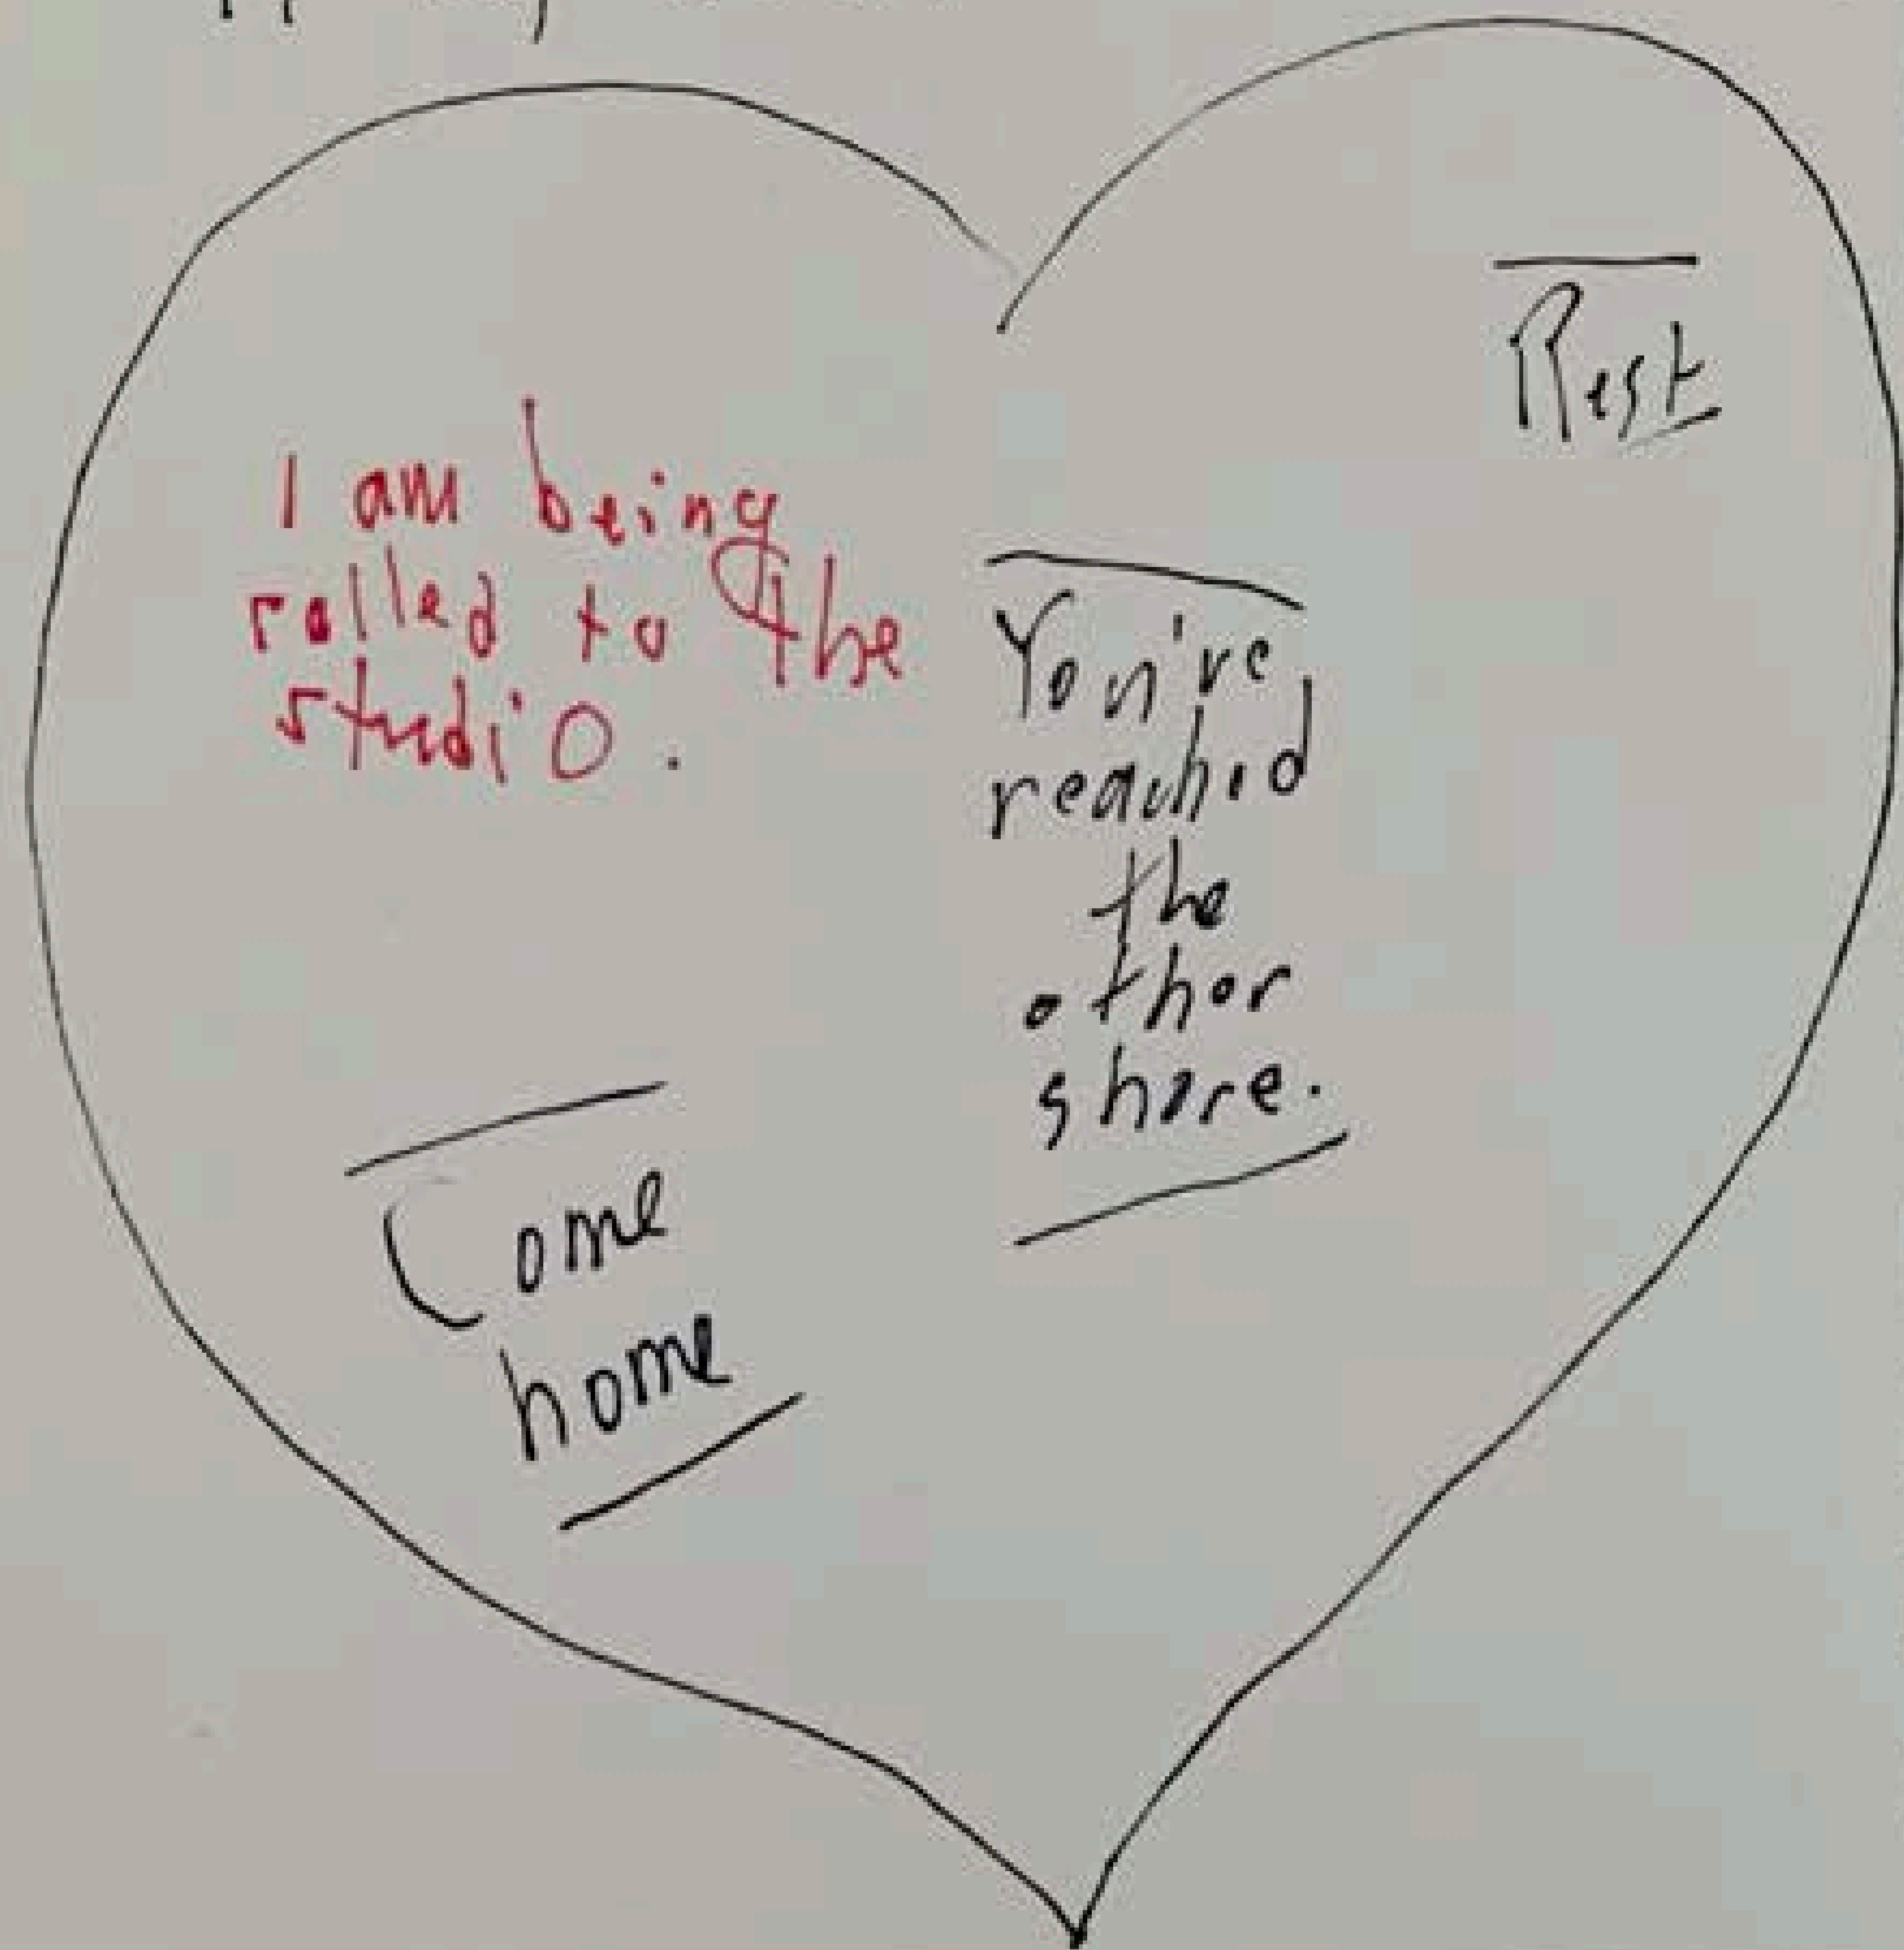 I am being
rolled to the
studio.
Rest
You've
reached
the
other
shore.
Come
home